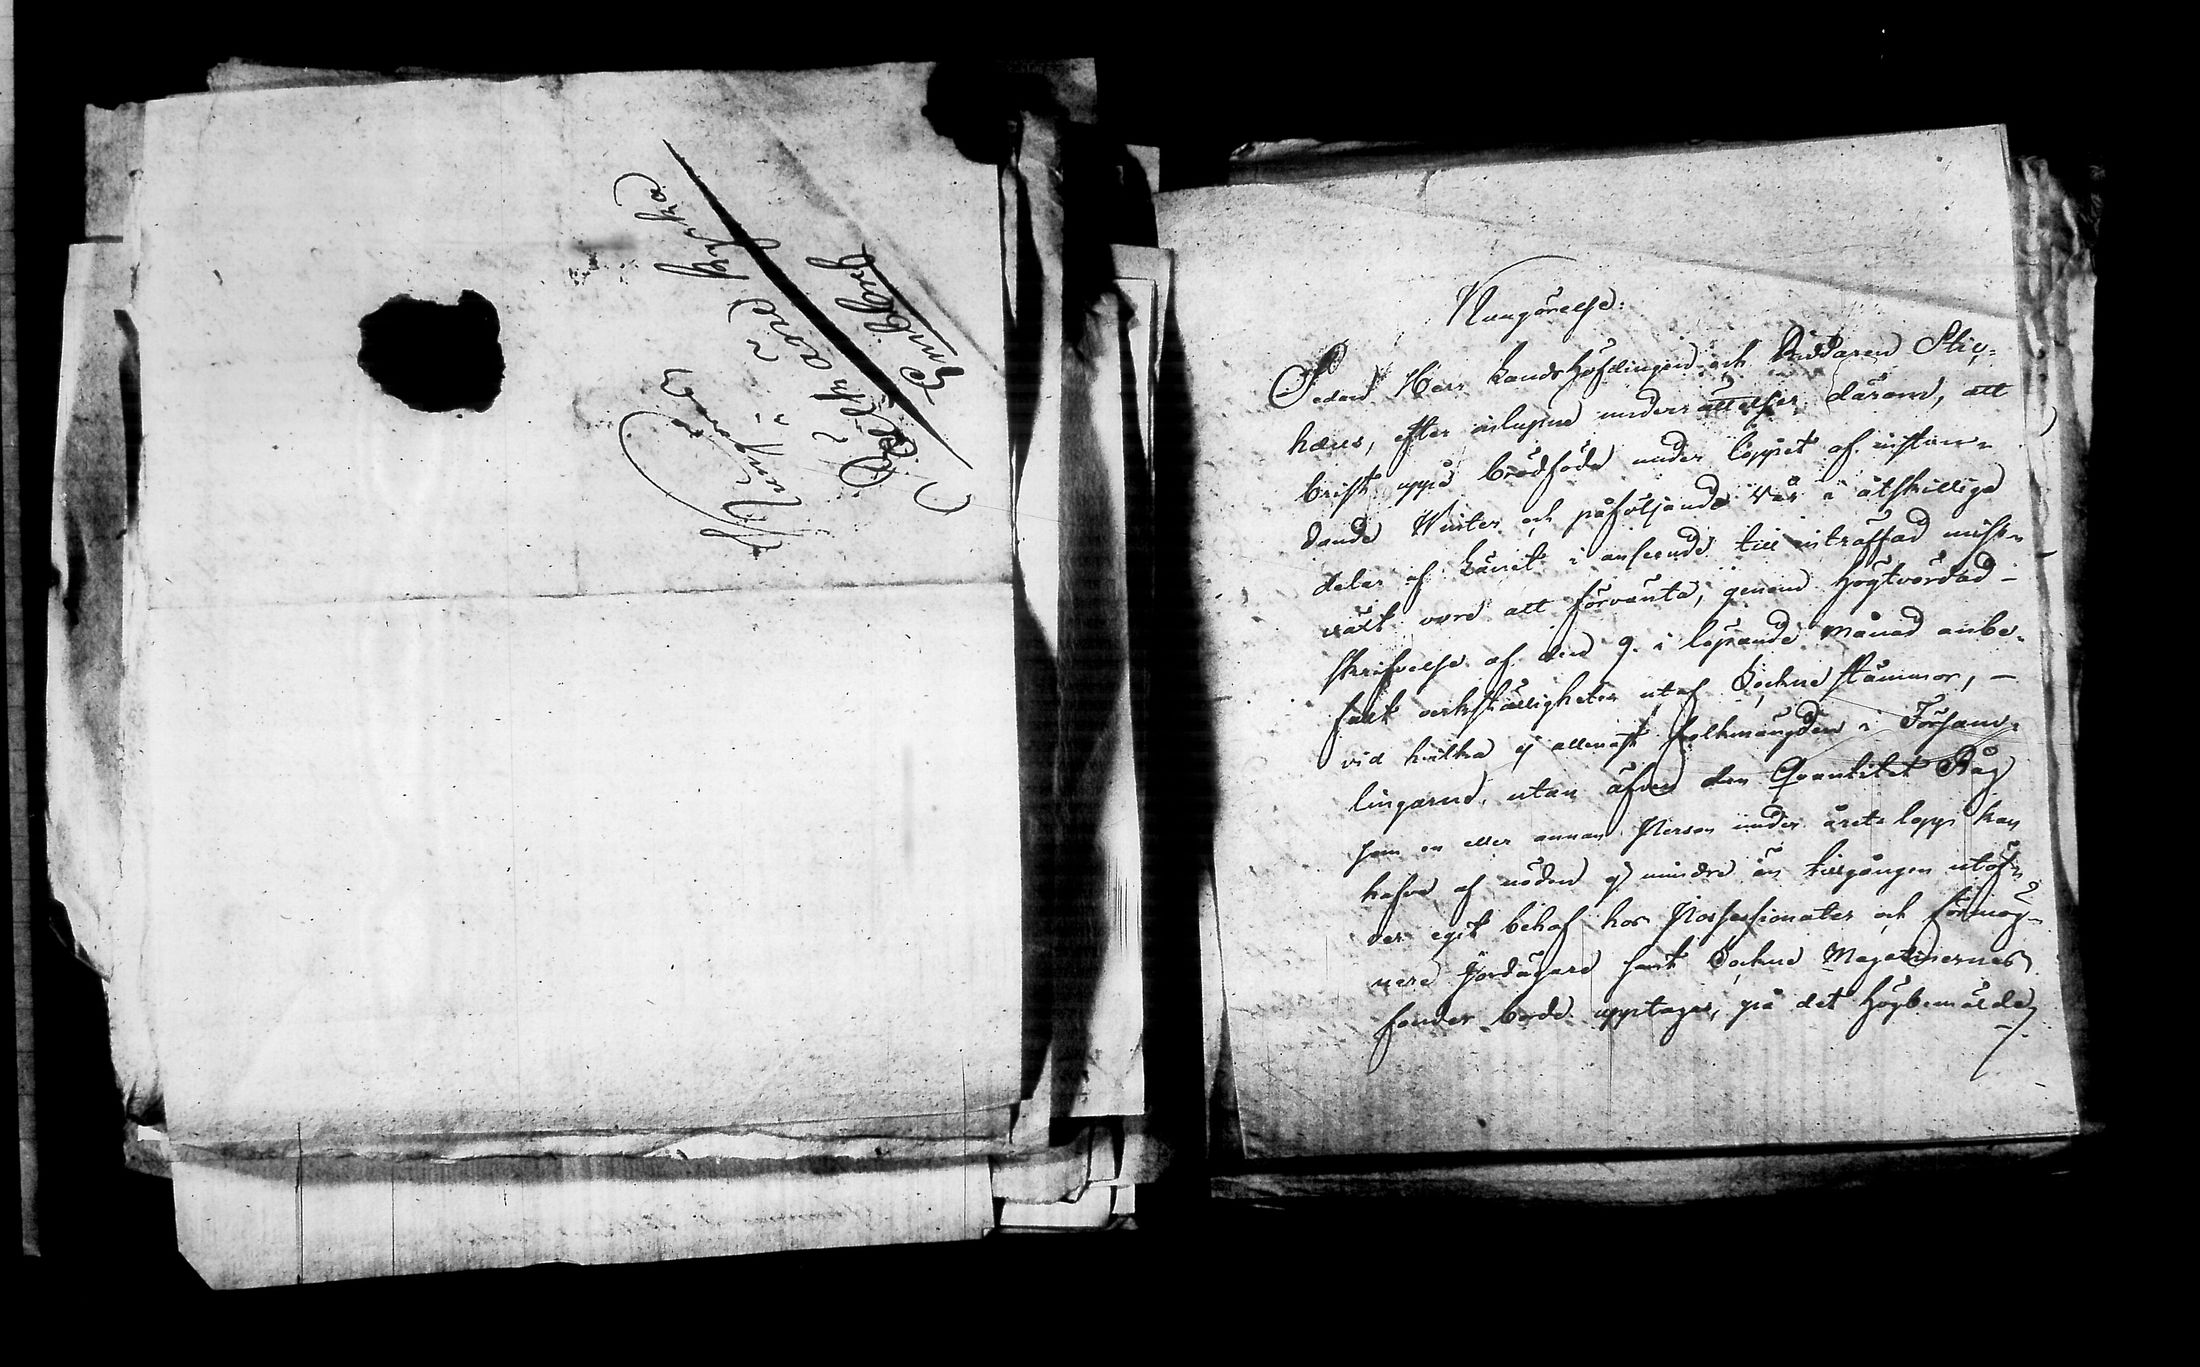 Kungöres
i
Pelkäne Kyrka
Emil Böök
Kungörelse:
Sedan Herr Landshöfdingen och Riddaren Stjern-
hæus, efter inlupne underrättelser därom, att
brist uppå brödföda under loppet af instun-
dande Winter och påföljande Vår i åtskillige
delar af Länet i anseende till inträffad miss-
växt vore att förvänta, genom högtvördad
skrifvelse af den 9. i löpande månad anbe-
falt verkställigheten utaf Sockne stämmor, —
vid hvilka ej allenast folkmängden i Försam-
lingarne, utan äfven den Quantitet Råg
som en eller annan Person under årets lopp kan
hafva af nöden ej mindre än tillgången utöf-
ver eget behof hos Possessionater och förmög-
nare Jordägare samt Sockne Magazinernes
fonder borde upptagas, på det Högbemälde